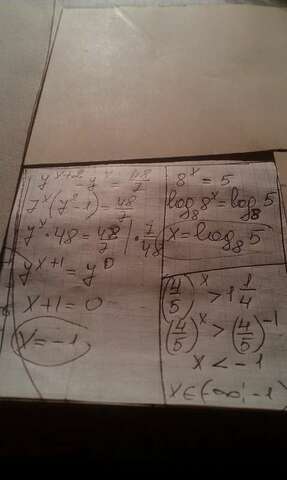 y^{x+2} - y^x = 48/7
y^x(y^2-1) = 48/7
y^x · 48 = 48/7 | · 7/48
y^{x+1} = y^0
x+1=0
x=-1
8^x = 5
log_8 8^x = log_8 5
x = log_8 5
(4/5)^x > 1 1/4
(4/5)^x > (4/5)^{-1}
x < -1
x∈(-∞; -1)